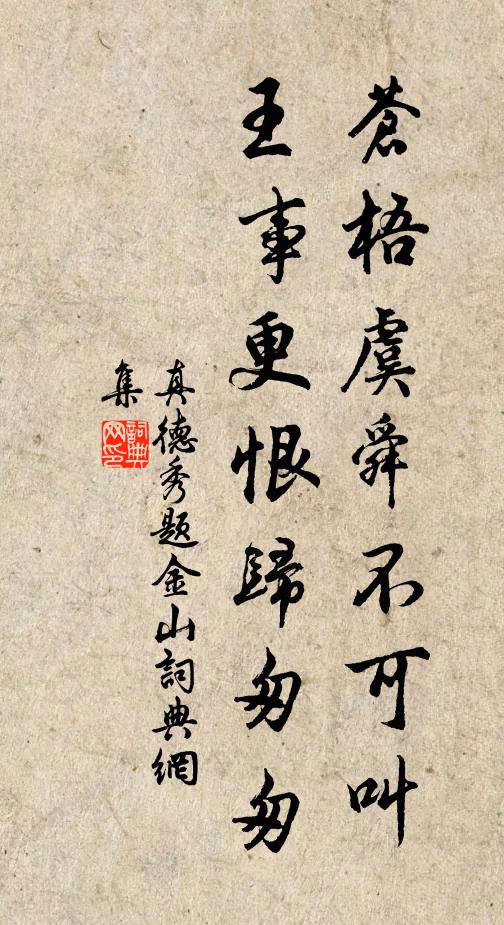 蒼梧虞舜不可叫
王事更恨歸匆匆
真德秀題金山詞典網
集
詞典网印